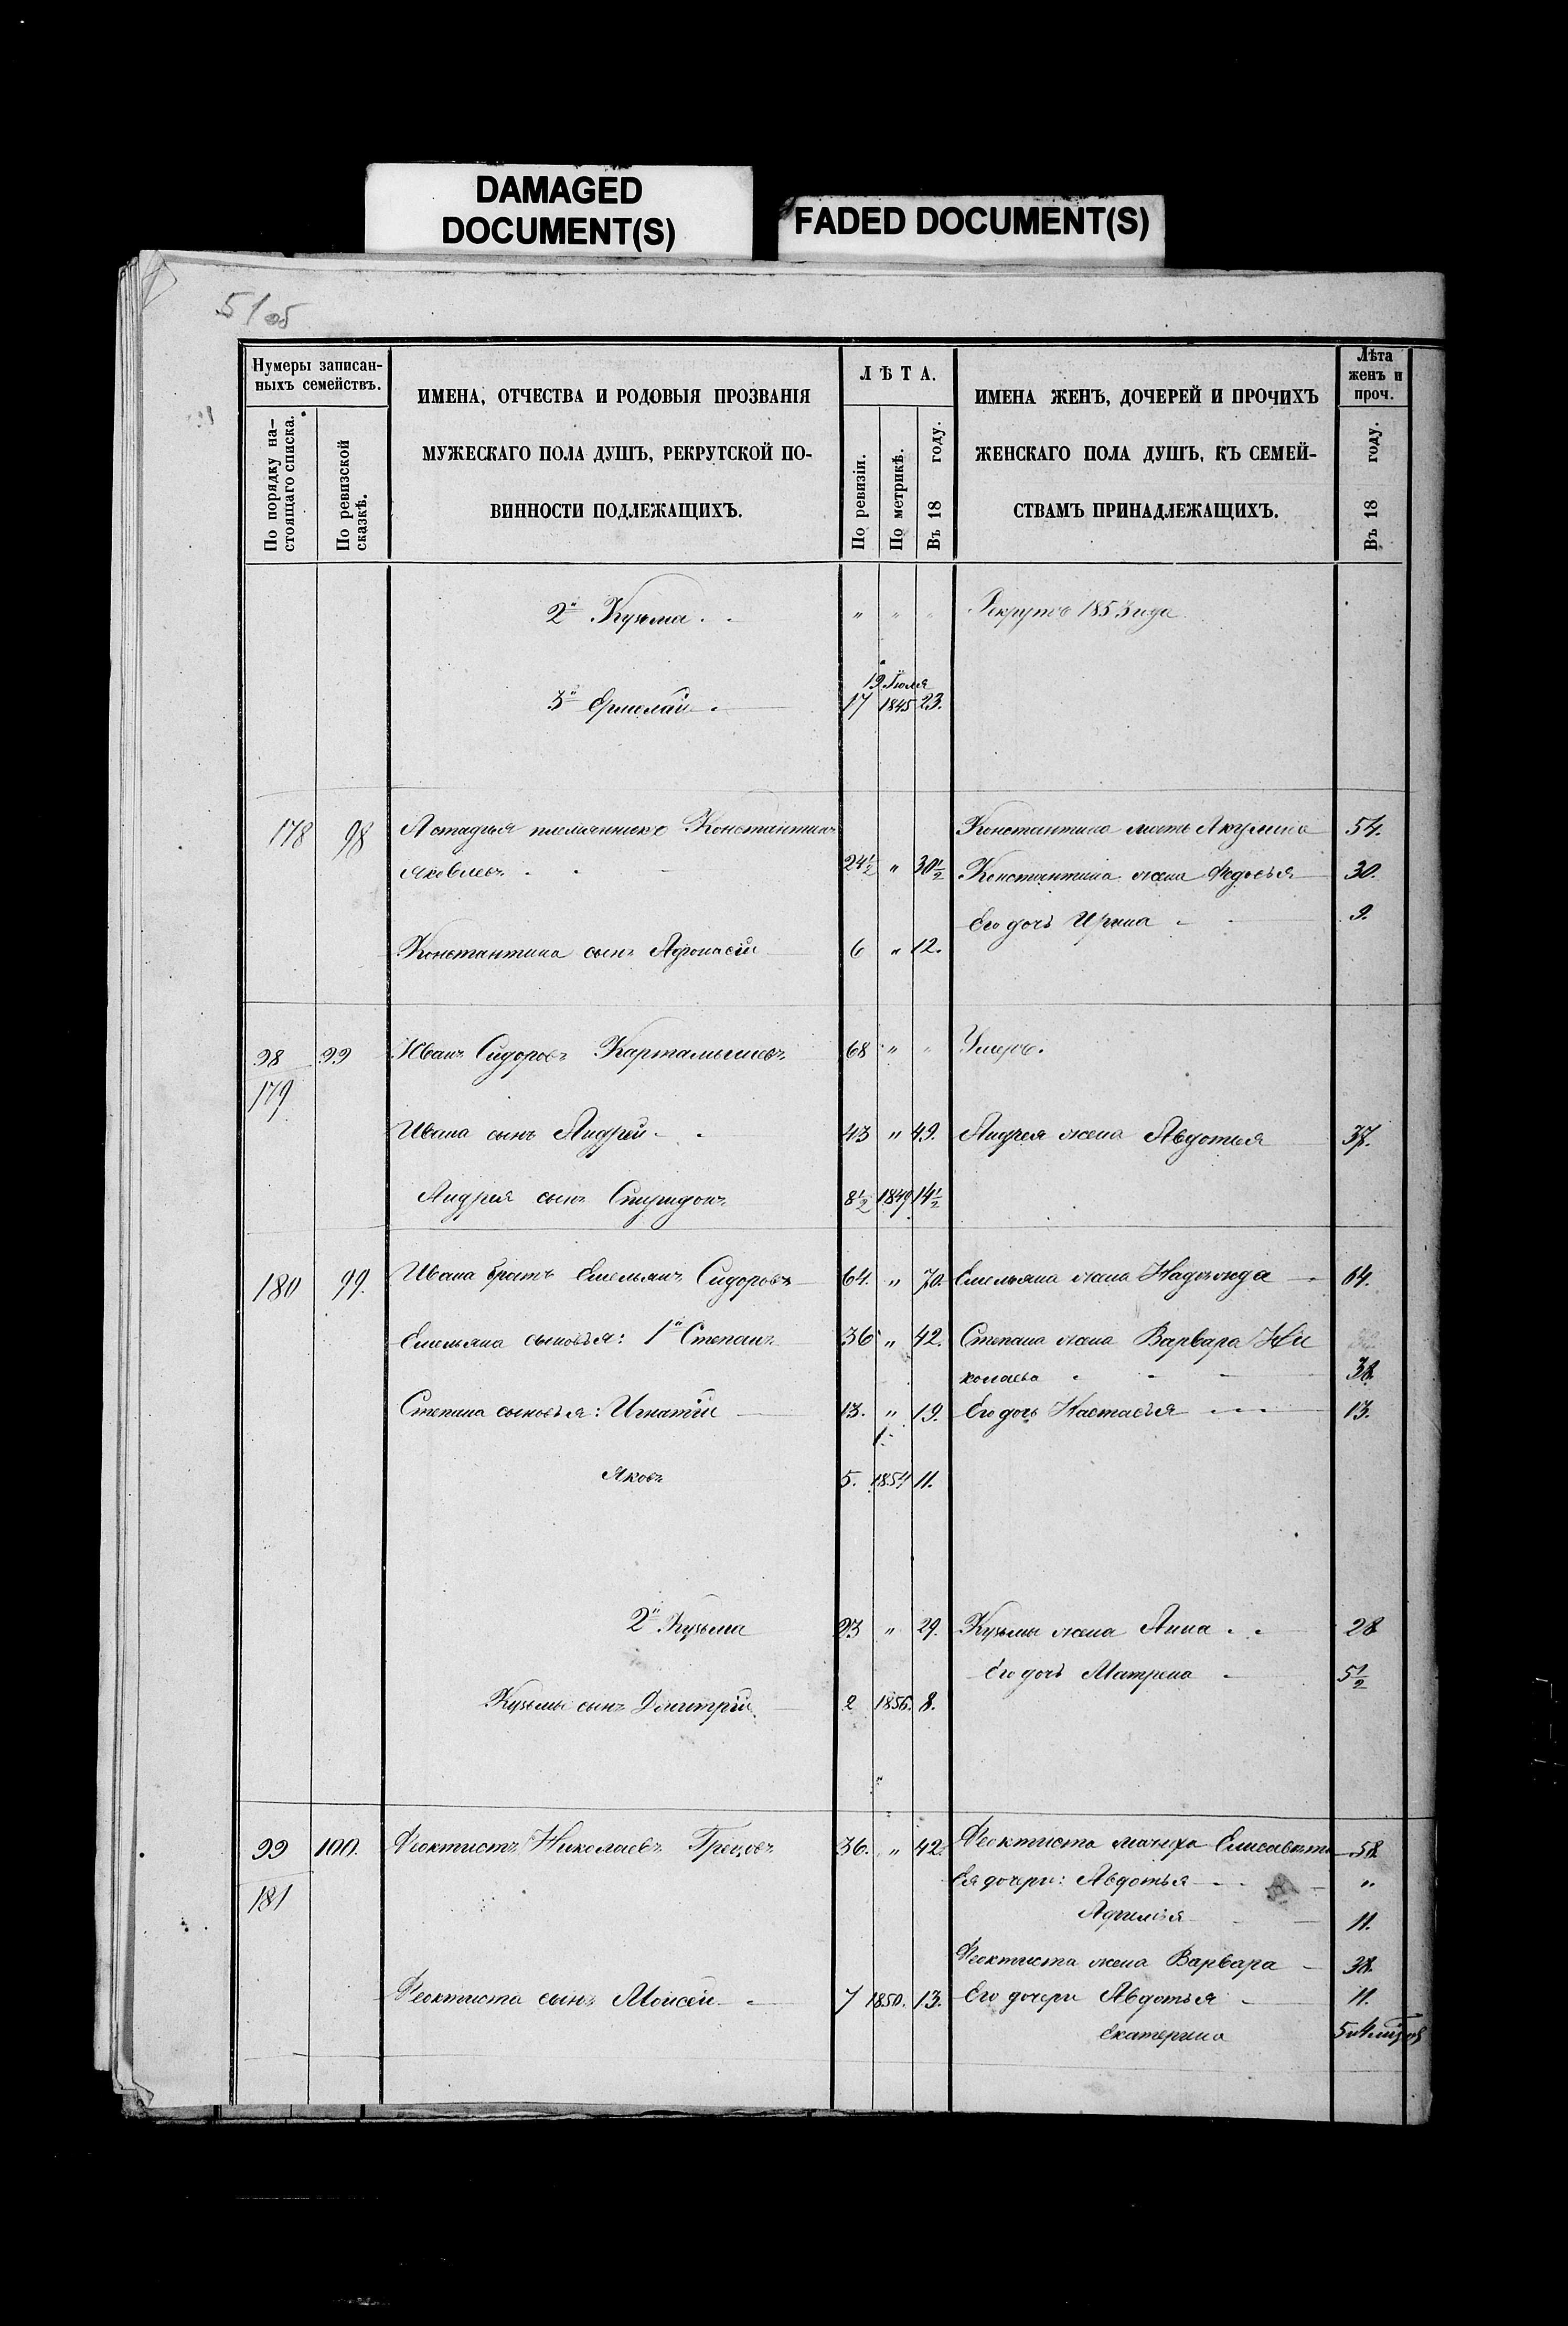 DAMAGED
DOCUMENT(S)
FADED DOCUMENT(S)
51 об
Нумеры записан-
ныхъ семействъ.
По порядку на-
стоящаго списка.
По ревизской
сказкѣ.
ИМЕНА, ОТЧЕСТВА И РОДОВЫЯ ПРОЗВАНІЯ
МУЖЕСКАГО ПОЛА ДУШЪ, РЕКРУТСКОЙ ПО-
ВИННОСТИ ПОДЛЕЖАЩИХЪ.
ЛѢТА.
По ревизіи.
По метрикѣ.
Въ 18 году.
ИМЕНА ЖЕНЪ, ДОЧЕРЕЙ И ПРОЧИХЪ
ЖЕНСКАГО ПОЛА ДУШЪ, КЪ СЕМЕЙ-
СТВАМЪ ПРИНАДЛЕЖАЩИХЪ.
Лѣта
женъ и
проч.
Въ 18 году.
2й Кузьма . . " " " Рекрутъ 1853 года
19 Іюля
3й Ермолай . 17 1845 23.
178 98 племянникъ Константинъ Константина мать Акулина 54.
Яковлевъ . . 24½ " 30½ Константина жена Федосья 30.
Его дочь Ирина 9.
Константина сынъ Афонасій 6 " 12.
98 99 Иванъ Сидоровъ Карталышевъ 68 " " Умеръ.
179
Ивана сынъ Андрей 43 " 49. Андрея жена Авдотья 37.
Андрея сынъ Спиридонъ 8½ 1849 14½
180 99. Ивана братъ Емельянъ Сидоровъ 64. " 70. Емельяна жена Надежда 64.
Емельяна сыновья: 1й Степанъ 36 " 42. Степана жена Варвара Ни
колаева 38.
Степана сыновья: Игнатій 13. " 19. Его дочь Настасья 13.
Яковъ 5. 1854 11.
2й Кузьма 23 " 29. Кузьмы жена Анна . . 28
Его дочь Матрена 5½
Кузьмы сынъ Дмитрій 2 1856. 8.
99 100. Феоктистъ Николаевъ 36. " 42. Феоктиста мачиха Елисавета 58.
181 Ея дочери: Авдотья "
11.
Феоктиста жена Варвара 38.
Феоктиста сынъ Моисей 7 1850. 13. Его дочери Авдотья 11.
Екатерина